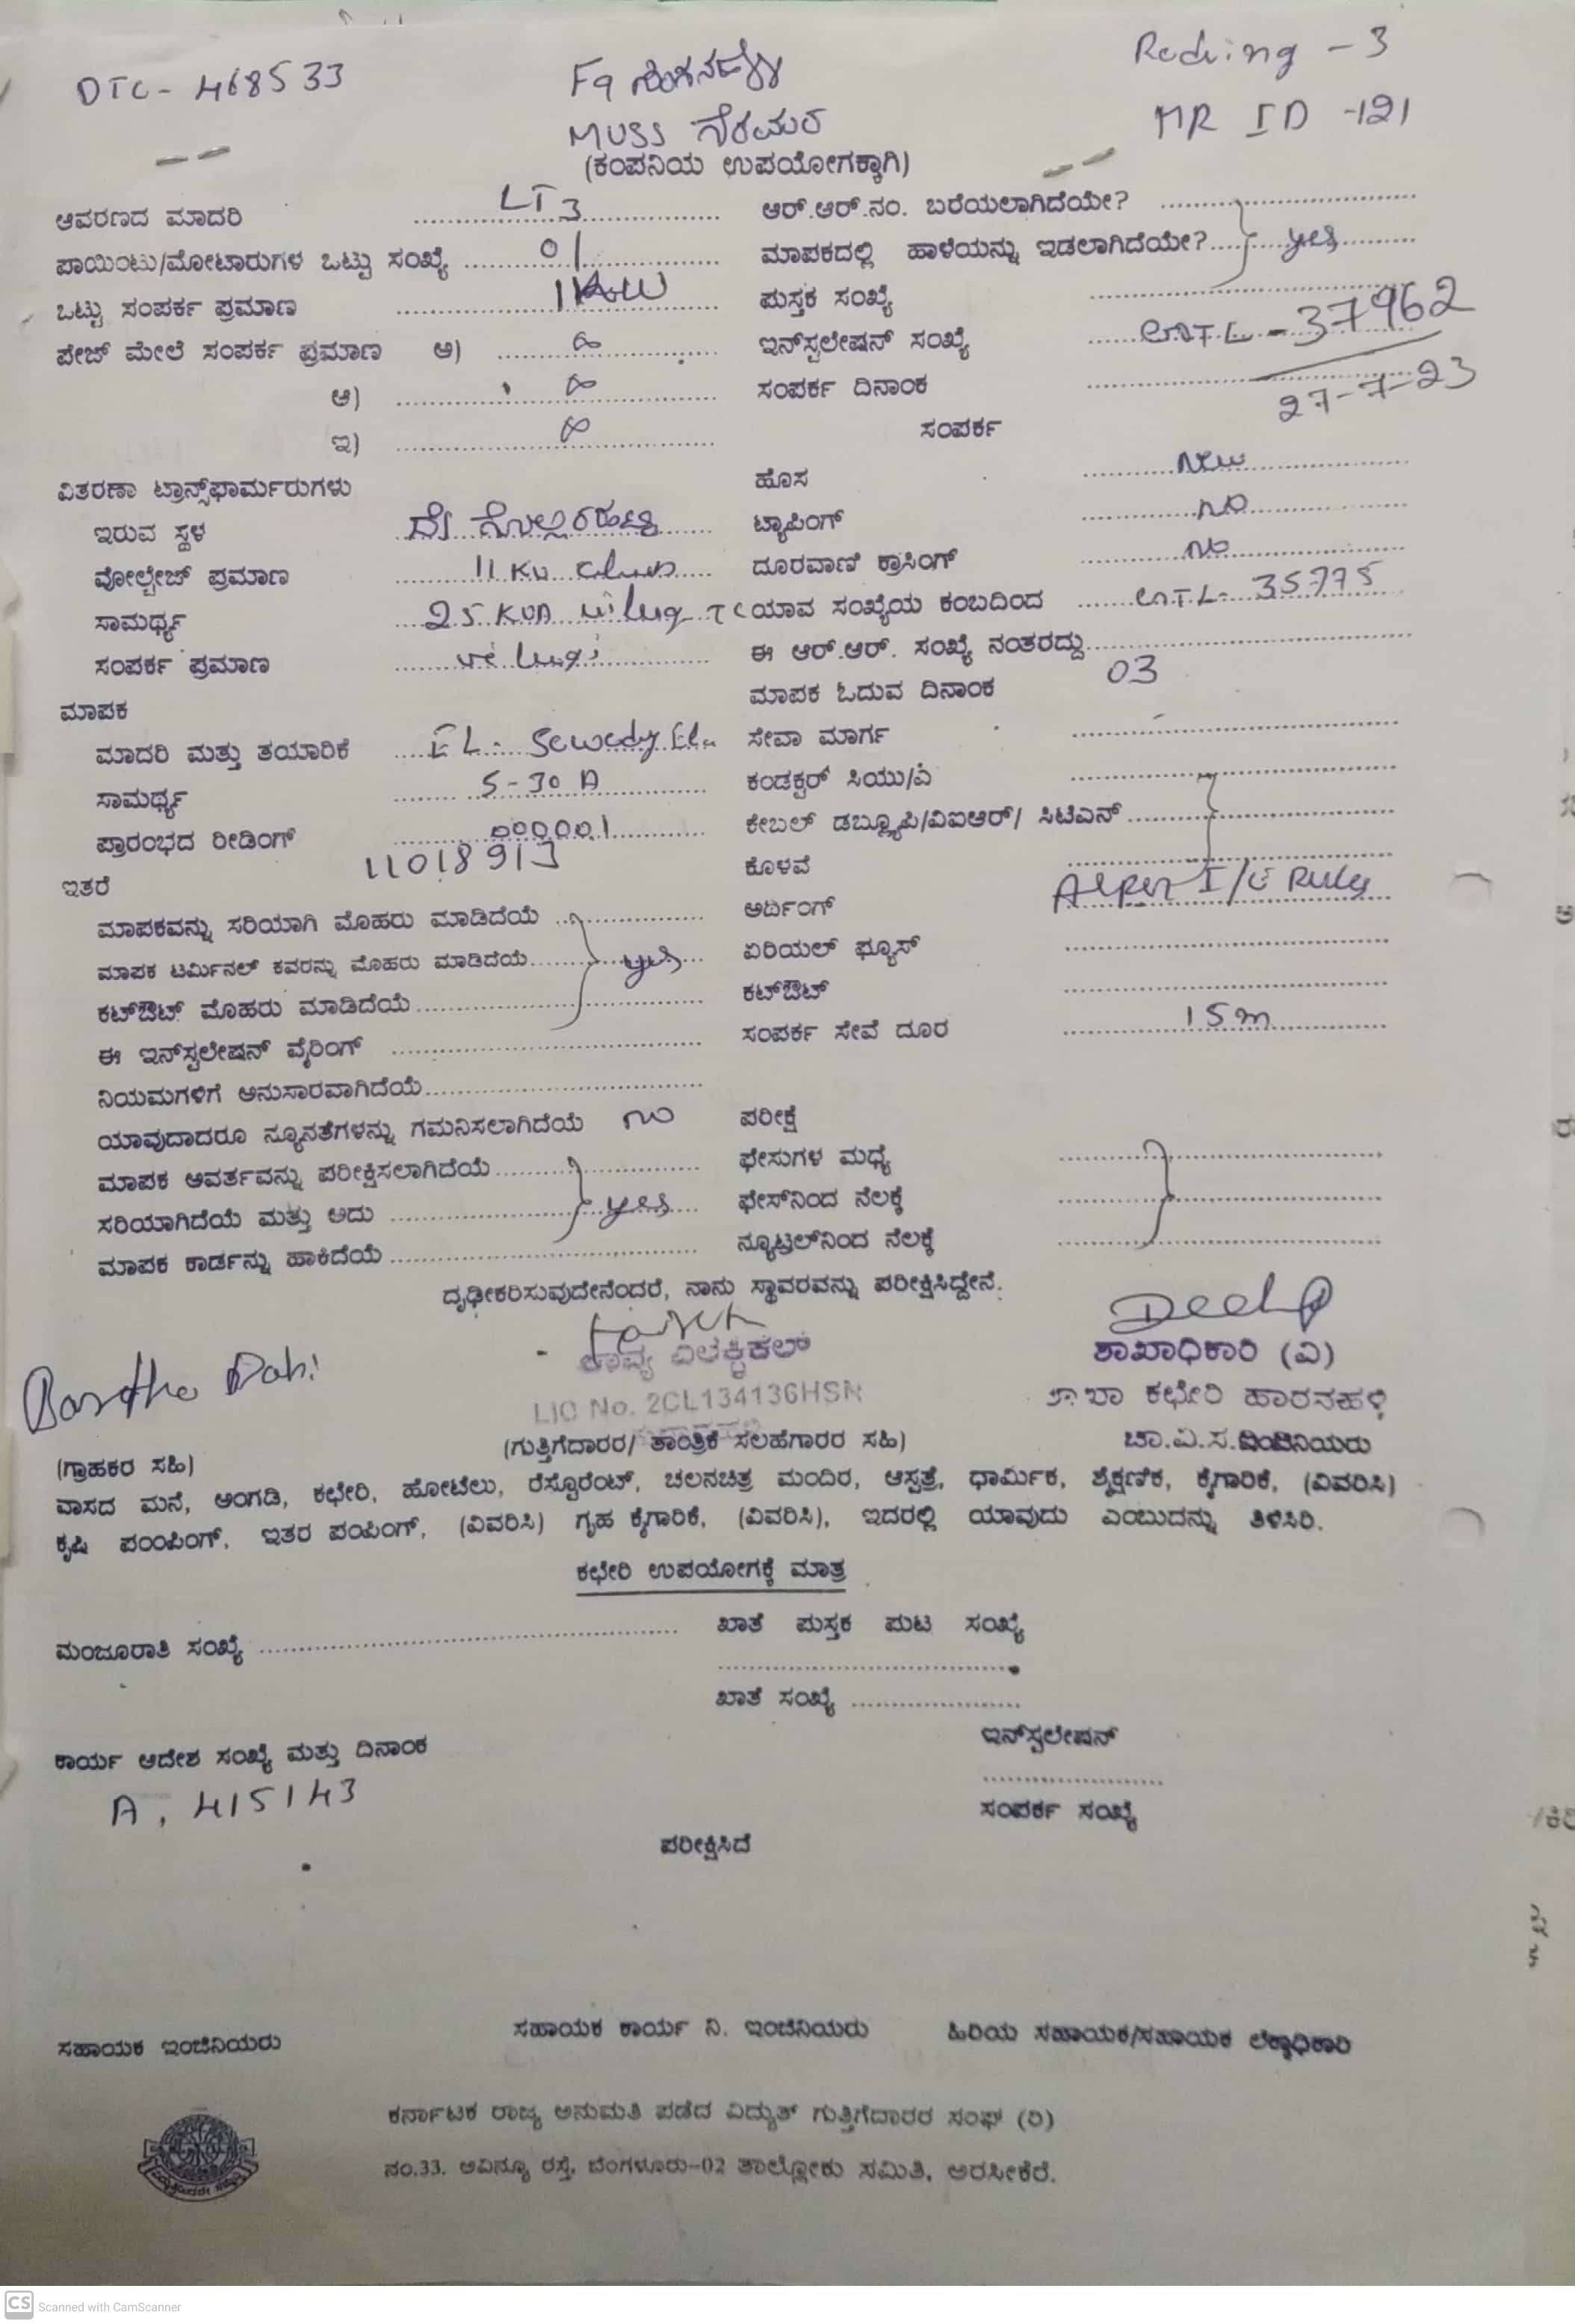 DTC- 468533
Reding - 3
F9
MUSS
MR ID -121
(ಕಂಪನಿಯ ಉಪಯೋಗಕ್ಕಾಗಿ)
ಆವರಣದ ಮಾದರಿ LT 3
ಆರ್.ಆರ್.ನಂ. ಬರೆಯಲಾಗಿದೆಯೇ?
ಪಾಯಿಂಟು/ಮೋಟಾರುಗಳ ಒಟ್ಟು ಸಂಖ್ಯೆ 01
ಮಾಪಕದಲ್ಲಿ ಹಾಳೆಯನ್ನು ಇಡಲಾಗಿದೆಯೇ? yes
ಒಟ್ಟು ಸಂಪರ್ಕ ಪ್ರಮಾಣ
ಪುಸ್ತಕ ಸಂಖ್ಯೆ
ಪೇಜ್ ಮೇಲೆ ಸಂಪರ್ಕ ಪ್ರಮಾಣ ಅ)
ಇನ್‌ಸ್ಟಲೇಷನ್ ಸಂಖ್ಯೆ - 37962
ಆ)
ಸಂಪರ್ಕ ದಿನಾಂಕ 27-7-23
ಇ)
ಸಂಪರ್ಕ
ವಿತರಣಾ ಟ್ರಾನ್ಸ್‌ಫಾರ್ಮರುಗಳು
ಹೊಸ New
ಇರುವ ಸ್ಥಳ
ಟ್ಯಾಪಿಂಗ್ no
ವೋಲ್ಟೇಜ್ ಪ್ರಮಾಣ 11 KV
ದೂರವಾಣಿ ಕ್ರಾಸಿಂಗ್ no
ಸಾಮರ್ಥ್ಯ 25 KVA TC
ಯಾವ ಸಂಖ್ಯೆಯ ಕಂಬದಿಂದ 35775
ಸಂಪರ್ಕ ಪ್ರಮಾಣ
ಈ ಆರ್.ಆರ್. ಸಂಖ್ಯೆ ನಂತರದ್ದು
ಮಾಪಕ
ಮಾಪಕ ಓದುವ ದಿನಾಂಕ 03
ಮಾದರಿ ಮತ್ತು ತಯಾರಿಕೆ EL- Sewedy Ele
ಸೇವಾ ಮಾರ್ಗ
ಸಾಮರ್ಥ್ಯ 5-30 A
ಕಂಡಕ್ಟರ್ ಸಿಯು/ಎ
ಪ್ರಾರಂಭದ ರೀಡಿಂಗ್ 000001
ಕೇಬಲ್ ಡಬ್ಲ್ಯೂಪಿ/ವಿಐಆರ್/ ಸಿಟಿಎಸ್
11018913
ಇತರೆ
ಕೊಳವೆ
ಮಾಪಕವನ್ನು ಸರಿಯಾಗಿ ಮೊಹರು ಮಾಡಿದೆಯೆ
ಅರ್ದಿಂಗ್ As per I/E Rules
ಮಾಪಕ ಟರ್ಮಿನಲ್ ಕವರನ್ನು ಮೊಹರು ಮಾಡಿದೆಯೆ yes
ಏರಿಯಲ್ ಫ್ಯೂಸ್
ಕಟ್‌ಔಟ್ ಮೊಹರು ಮಾಡಿದೆಯೆ
ಕಟ್‌ಔಟ್
ಈ ಇನ್‌ಸ್ಟಲೇಷನ್ ವೈರಿಂಗ್
ಸಂಪರ್ಕ ಸೇವೆ ದೂರ 15m
ನಿಯಮಗಳಿಗೆ ಅನುಸಾರವಾಗಿದೆಯೆ
ಯಾವುದಾದರೂ ನ್ಯೂನತೆಗಳನ್ನು ಗಮನಿಸಲಾಗಿದೆಯೆ no
ಪರೀಕ್ಷೆ
ಮಾಪಕ ಆವರ್ತವನ್ನು ಪರೀಕ್ಷಿಸಲಾಗಿದೆಯೆ
ಫೇಸುಗಳ ಮಧ್ಯೆ
ಸರಿಯಾಗಿದೆಯೆ ಮತ್ತು ಅದು yes
ಫೇಸ್‌ನಿಂದ ನೆಲಕ್ಕೆ
ಮಾಪಕ ಕಾರ್ಡನ್ನು ಹಾಕಿದೆಯೆ
ನ್ಯೂಟ್ರಲ್‌ನಿಂದ ನೆಲಕ್ಕೆ
ದೃಢೀಕರಿಸುವುದೇನೆಂದರೆ, ನಾನು ಸ್ಥಾವರವನ್ನು ಪರೀಕ್ಷಿಸಿದ್ದೇನೆ.
ಕಾವ್ಯ ಎಲೆಕ್ಟ್ರಿಕಲ್
ಶಾಖಾಧಿಕಾರಿ (ವಿ)
LIC No. 2CL134136HSN
ಶಾಖಾ ಕಛೇರಿ ಹಾರನಹಳ್ಳಿ
(ಗುತ್ತಿಗೆದಾರರ/ ತಾಂತ್ರಿಕ ಸಲಹೆಗಾರರ ಸಹಿ)
ಚಾ.ವಿ.ಸ.
(ಗ್ರಾಹಕರ ಸಹಿ)
ವಾಸದ ಮನೆ, ಅಂಗಡಿ, ಕಛೇರಿ, ಹೋಟೆಲು, ರೆಸ್ಟೊರೆಂಟ್, ಚಲನಚಿತ್ರ ಮಂದಿರ, ಆಸ್ಪತ್ರೆ, ಧಾರ್ಮಿಕ, ಶೈಕ್ಷಣಿಕ, ಕೈಗಾರಿಕೆ, (ವಿವರಿಸಿ)
ಕೃಷಿ ಪಂಪಿಂಗ್, ಇತರ ಪಂಪಿಂಗ್, (ವಿವರಿಸಿ) ಗೃಹ ಕೈಗಾರಿಕೆ, (ವಿವರಿಸಿ), ಇದರಲ್ಲಿ ಯಾವುದು ಎಂಬುದನ್ನು ತಿಳಿಸಿರಿ.
ಕಛೇರಿ ಉಪಯೋಗಕ್ಕೆ ಮಾತ್ರ
ಮಂಜೂರಾತಿ ಸಂಖ್ಯೆ
ಖಾತೆ ಪುಸ್ತಕ ಪುಟ ಸಂಖ್ಯೆ
ಖಾತೆ ಸಂಖ್ಯೆ
ಕಾರ್ಯ ಆದೇಶ ಸಂಖ್ಯೆ ಮತ್ತು ದಿನಾಂಕ
ಇನ್‌ಸ್ಟಲೇಷನ್
A, 415143
ಸಂಪರ್ಕ ಸಂಖ್ಯೆ
ಪರೀಕ್ಷಿಸಿದೆ
ಸಹಾಯಕ ಇಂಜಿನಿಯರು
ಸಹಾಯಕ ಕಾರ್ಯ ನಿ. ಇಂಜಿನಿಯರು
ಹಿರಿಯ ಸಹಾಯಕ/ಸಹಾಯಕ ಲೆಕ್ಕಾಧಿಕಾರಿ
ಕರ್ನಾಟಕ ರಾಜ್ಯ ಅನುಮತಿ ಪಡೆದ ವಿದ್ಯುತ್ ಗುತ್ತಿಗೆದಾರರ ಸಂಘ (ರಿ)
ನಂ.33. ಅವಿನ್ಯೂ ರಸ್ತೆ, ಬೆಂಗಳೂರು-02 ತಾಲ್ಲೋಕು ಸಮಿತಿ, ಅರಸೀಕೆರೆ.
CS Scanned with CamScanner